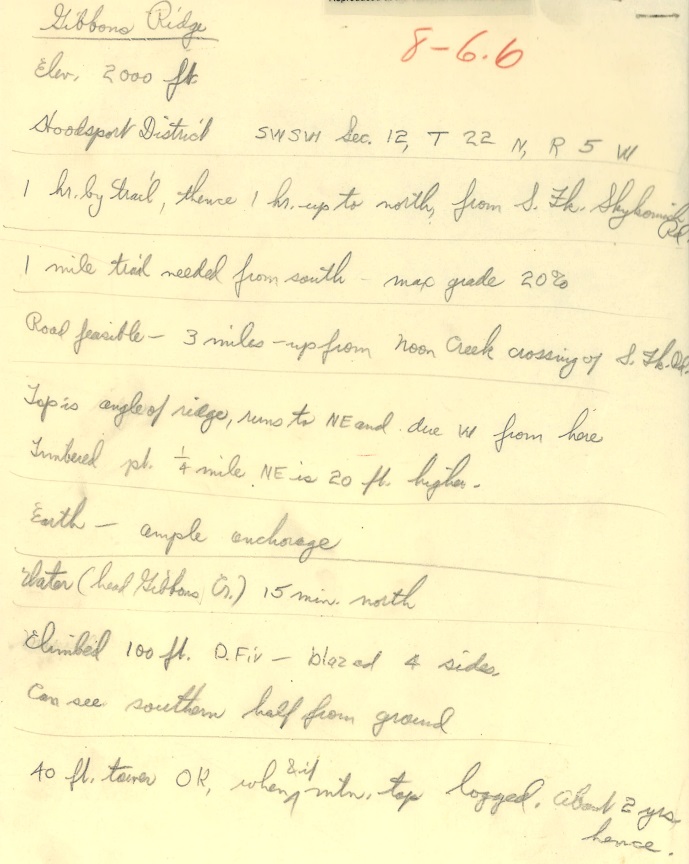 Gibbons Ridge
8-6.6
Elev. 2000 ft.
Hoodsport District SWSW Sec. 12, T 22 N, R 5 W
1 hr. by trail, thence 1 hr. up to north, from S. Fk. Skykomish Rd.
1 mile trail needed from south - max grade 20%
Road feasible - 3 miles - up from Noon Creek crossing of S. Fk. Rd.
Top is angle of ridge, runs to NE and due W from here
Timbered pt. 1/4 mile NE is 20 ft. higher.
Earth - ample anchorage
Water (head Gibbons Cr.) 15 min. north
Climbed 100 ft. D. Fir - blazed 4 sides.
Can see southern half from ground
40 ft. tower OK, when & if mtn. top logged. About 2 yrs.
hence.